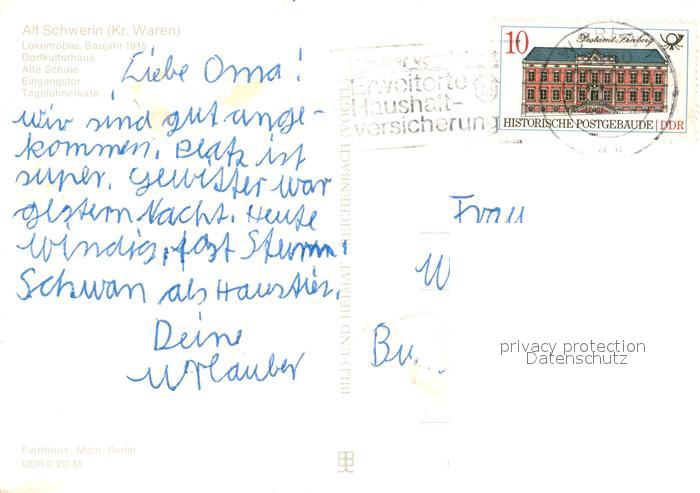 Alt Schwerin (Kr. Waren)
Lokomobile, Baujahr 1915
Dorfkulturhaus
Alte Schule
Eingangstor
Tagelöhnerkate
Liebe Oma!
wir sind gut ange-
kommen. Platz ist
super. Gewitter war
gestern Nacht. Heute
Windig, fast Sturm.
Schwan als Haustier.
Deine
Urlauber
Farbfotos: Mohr, Berlin
DDR 0,20 M
BILD UND HEIMAT REICHENBACH (VOGTL)
Erweiterte
Haushalt-
versicherung
10
Postamt Freiberg
HISTORISCHE POSTGEBÄUDE DDR
Frau
W
Bu
privacy protection
Datenschutz